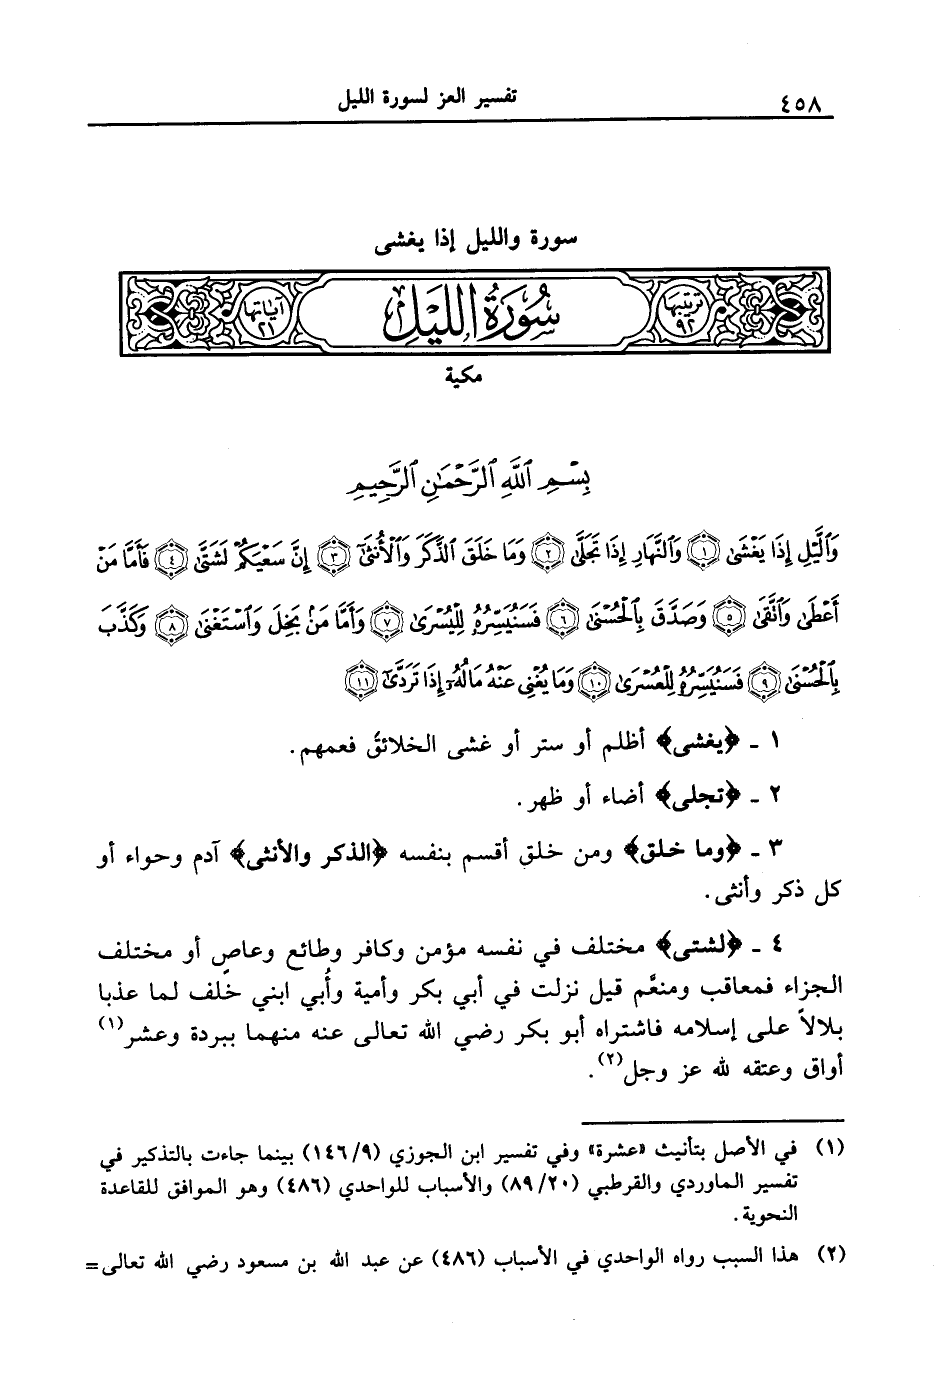 ٤٥٨ تفسير العز لسورة الليل
سورة والليل إذا يغشى
ترتيبها ٩٢ سُورَةُ اللَّيْلِ آياتها ٢١
مكية
بِسْمِ ٱللَّهِ ٱلرَّحْمَٰنِ ٱلرَّحِيمِ
وَٱلَّيْلِ إِذَا يَغْشَىٰ ﴿١﴾ وَٱلنَّهَارِ إِذَا تَجَلَّىٰ ﴿٢﴾ وَمَا خَلَقَ ٱلذَّكَرَ وَٱلْأُنثَىٰٓ ﴿٣﴾ إِنَّ سَعْيَكُمْ لَشَتَّىٰ ﴿٤﴾ فَأَمَّا مَنْ
أَعْطَىٰ وَٱتَّقَىٰ ﴿٥﴾ وَصَدَّقَ بِٱلْحُسْنَىٰ ﴿٦﴾ فَسَنُيَسِّرُهُۥ لِلْيُسْرَىٰ ﴿٧﴾ وَأَمَّا مَنۢ بَخِلَ وَٱسْتَغْنَىٰ ﴿٨﴾ وَكَذَّبَ
بِٱلْحُسْنَىٰ ﴿٩﴾ فَسَنُيَسِّرُهُۥ لِلْعُسْرَىٰ ﴿١٠﴾ وَمَا يُغْنِى عَنْهُ مَالُهُۥٓ إِذَا تَرَدَّىٰٓ ﴿١١﴾
١ ـ ﴿يغشى﴾ أظلم أو ستر أو غشى الخلائقُ فعمهم.
٢ ـ ﴿تجلى﴾ أضاء أو ظهر.
٣ ـ ﴿وما خلق﴾ ومن خلق أقسم بنفسه ﴿الذكر والأنثى﴾ آدم وحواء أو
كل ذكر وأنثى.
٤ ـ ﴿لشتى﴾ مختلف في نفسه مؤمن وكافر وطائع وعاصٍ أو مختلف
الجزاء فمعاقب ومنعَّم قيل نزلت في أبي بكر وأمية وأُبي ابني خلف لما عذبا
بلالاً على إسلامه فاشتراه أبو بكر رضي الله تعالى عنه منهما ببردة وعشر(١)
أواق وعتقه لله عز وجل(٢).
(١) في الأصل بتأنيث «عشرة» وفي تفسير ابن الجوزي (١٤٦/٩) بينما جاءت بالتذكير في
تفسير الماوردي والقرطبي (٨٩/٢٠) والأسباب للواحدي (٤٨٦) وهو الموافق للقاعدة
النحوية.
(٢) هذا السبب رواه الواحدي في الأسباب (٤٨٦) عن عبد الله بن مسعود رضي الله تعالى=